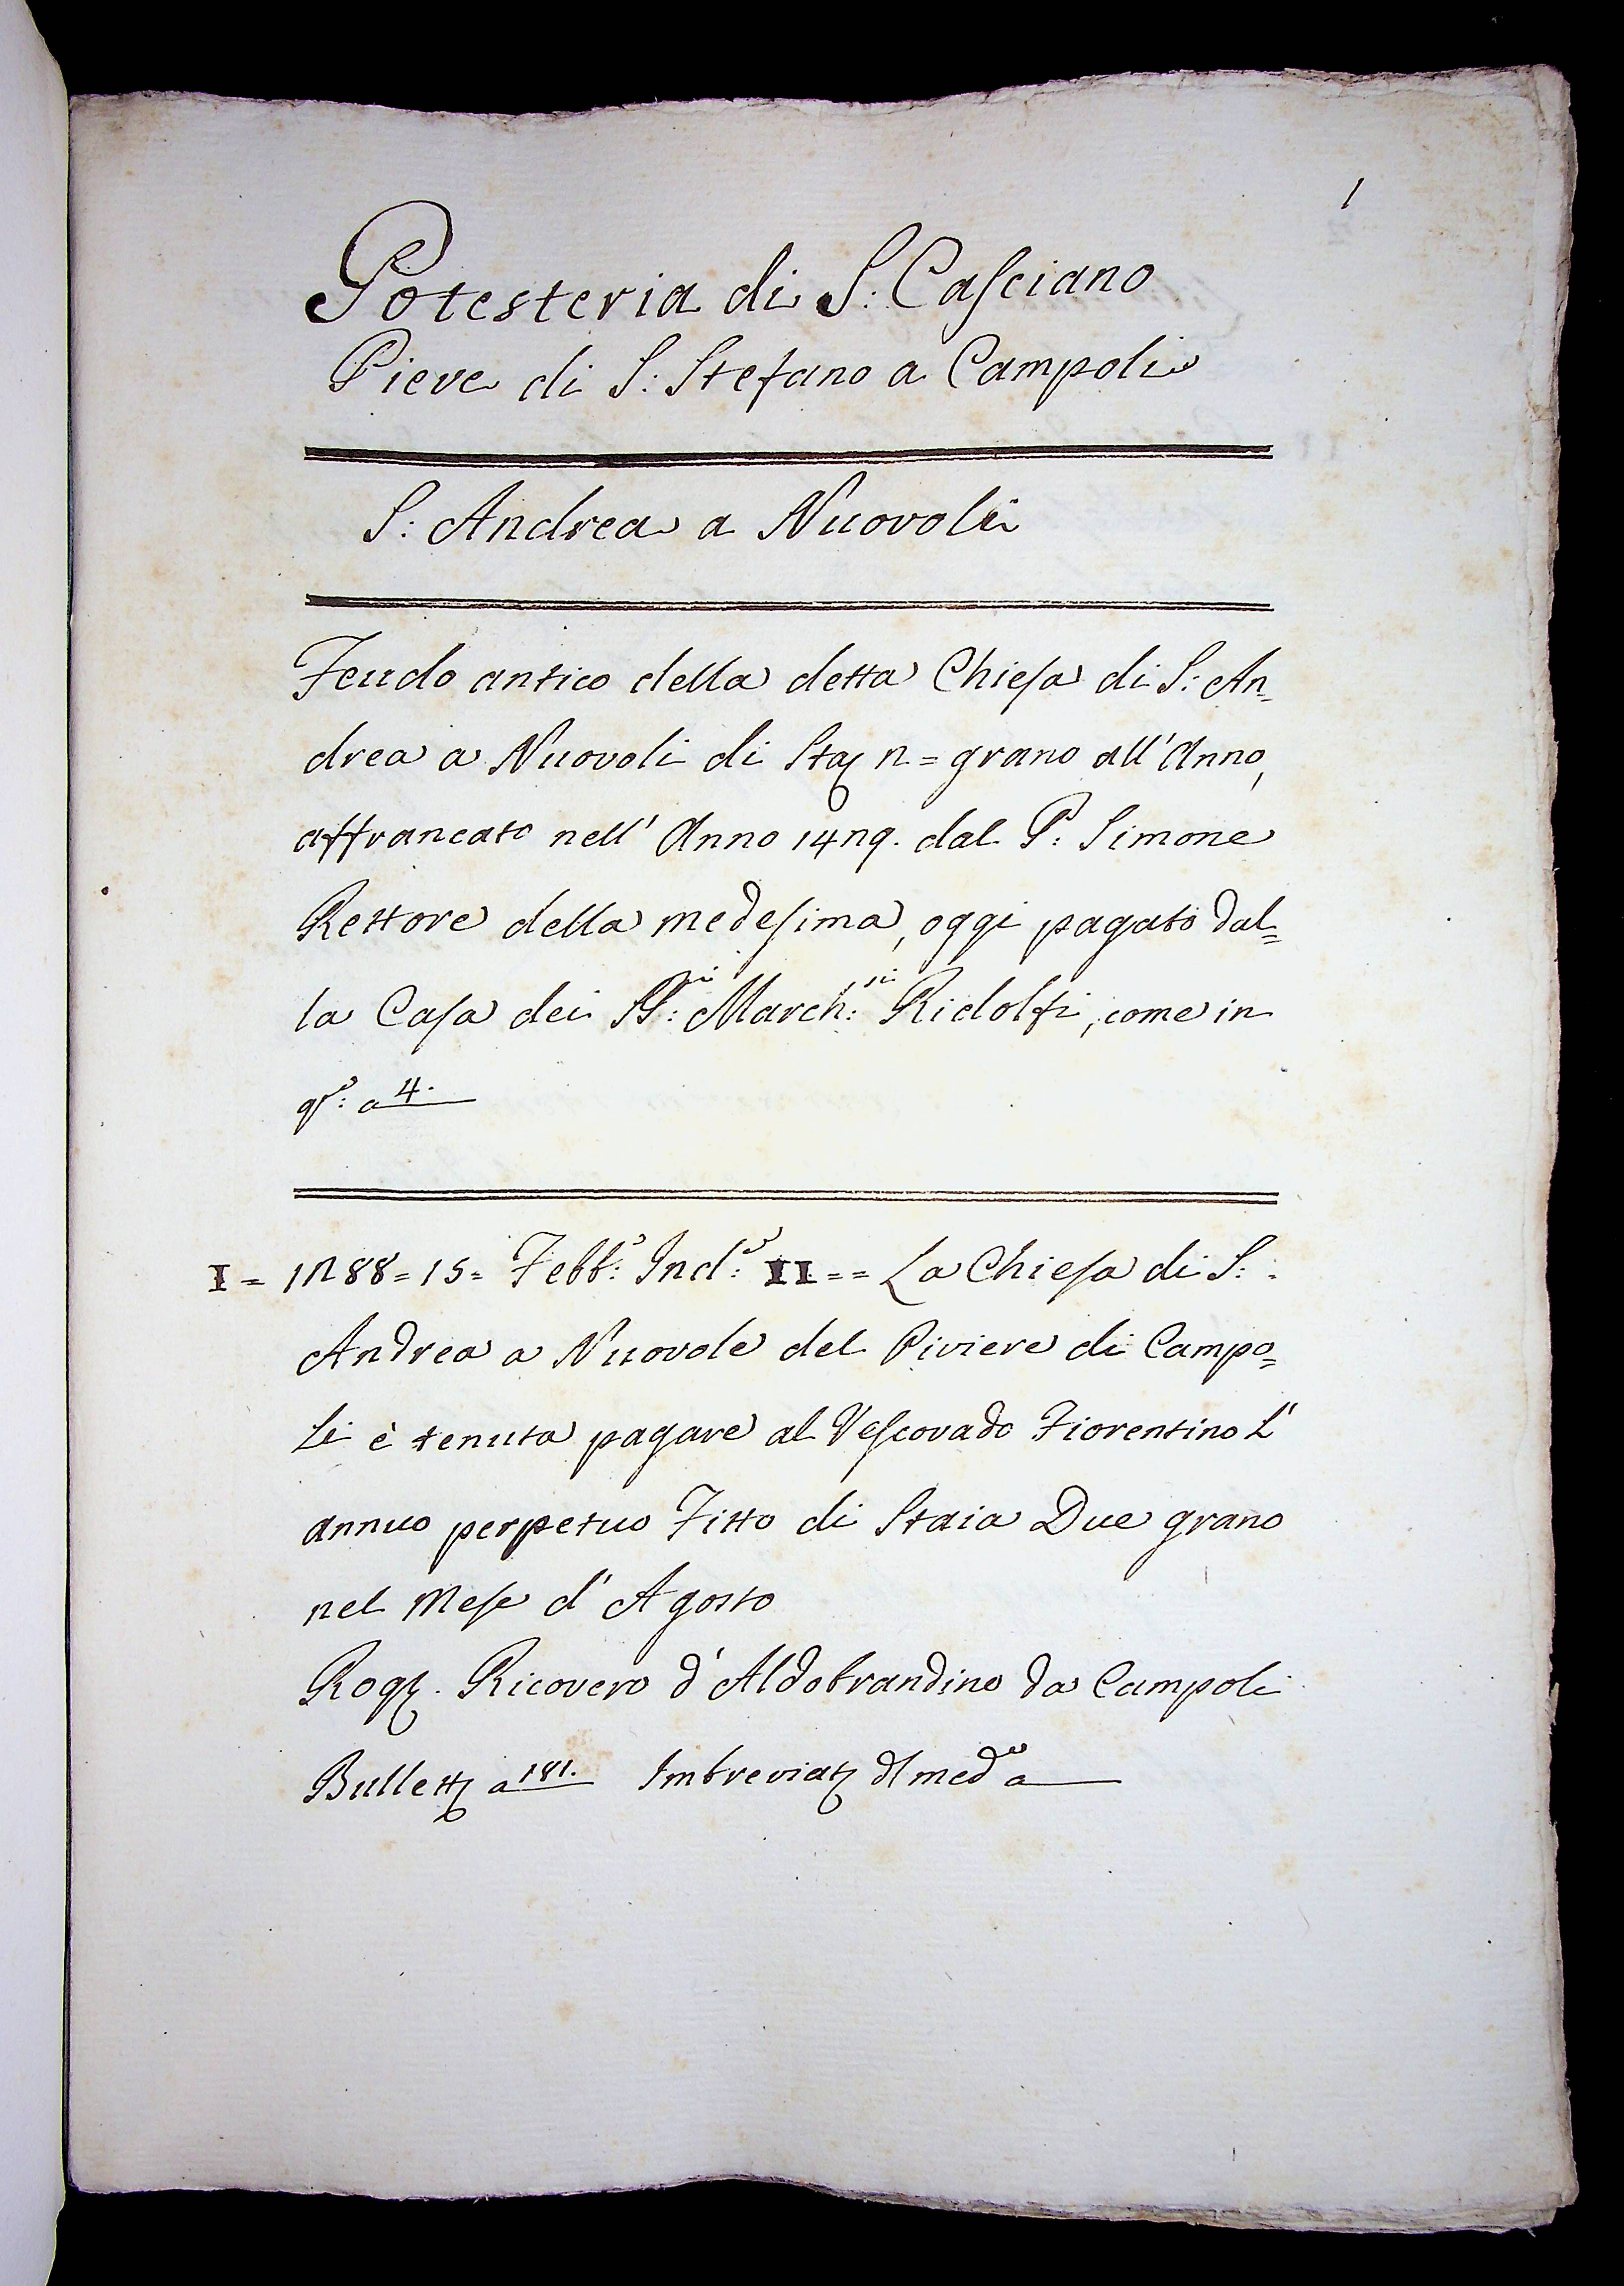 1
Potesteria di S: Casciano
Pieve di S: Stefano a Campoli
S: Andrea a Nuovoli
Feudo antico della detta Chiesa di S: An=
drea a Nuovoli di Sta 2 = grano all'Anno,
affrancato nell'Anno 1429. dal P: Simone
Rettore della medesima, oggi pagato dal=
la Casa dei SS:ri March:si Ridolfi, come in
qs:o a 4.
I = 1288 = 15 = Febb:o Ind:e II == La Chiesa di S:
Andrea a Nuovole del Piviere di Campo=
li è tenuta pagare al Vescovado Fiorentino L'
annuo perpetuo Fitto di Staia Due grano
nel Mese d'Agosto
Rog. Ricovero d'Aldobrandino da Campoli
Bullett a 181. Imbreviat dl med.o a